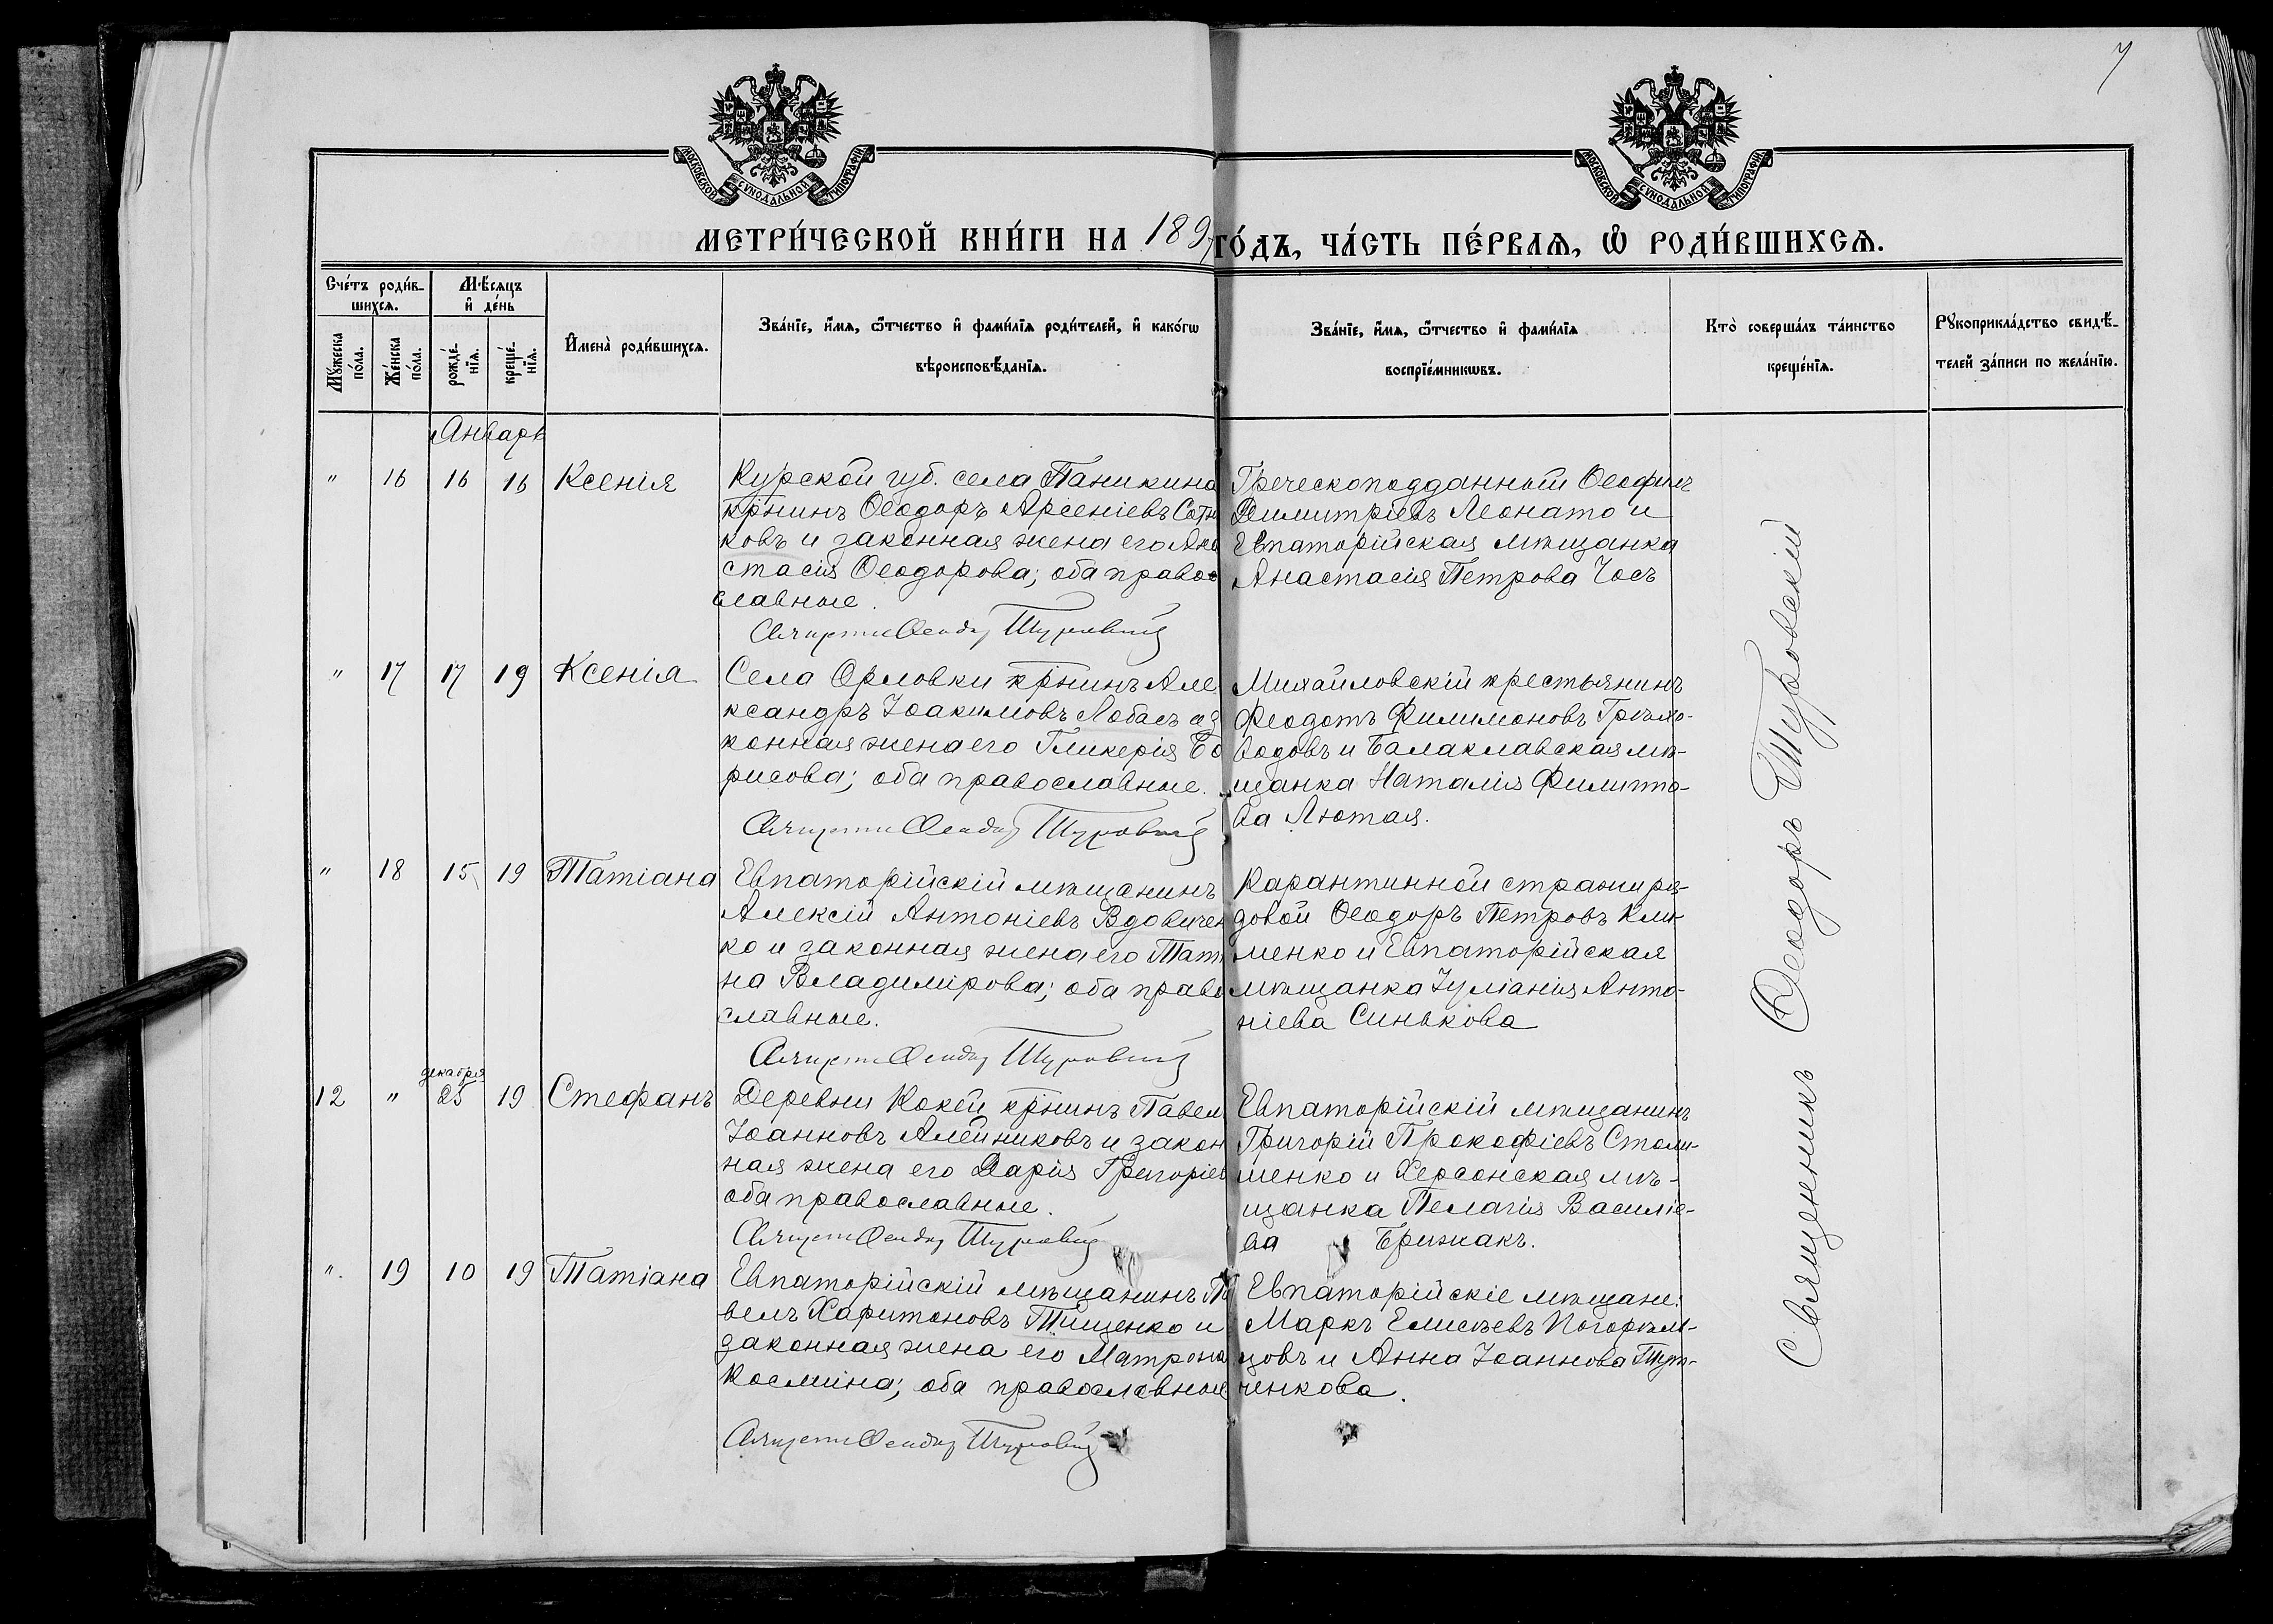 7
МОСКОВСКОЙ СѴНОДАЛЬНОЙ ТИПОГРАФІИ
МОСКОВСКОЙ СѴНОДАЛЬНОЙ ТИПОГРАФІИ
МЕТРИ́ЧЕСКОЙ КНИ́ГИ НА 189 ГО́ДЪ, ЧА́СТЬ ПЕ́РВАѦ, Ѡ҆ РОДИ́ВШИХСѦ.
Сче́тъ роди́в-
шихсѧ.
Мѣ́сѧцъ
и҆ де́нь
Мꙋ́жеска
по́ла.
Же́нска
по́ла.
рожде́-
нїѧ.
креще́-
нїѧ.
И҆мена̀ роди́вшихсѧ.
Зва́нїе, и҆́мѧ, ѻ҆́тчество и҆ фами́лїѧ роди́телей, и҆ како́гѡ
вѣроисповѣ́данїѧ.
Зва́нїе, и҆́мѧ, ѻ҆́тчество и҆ фами́лїѧ
воспрїе́мникѡвъ.
Кто̀ соверша́лъ та́инство
креще́нїѧ.
Рꙋкоприкла́дство свидѣ́-
телей за́писи по жела́нїю.
Январь
" 16 16 16 Ксенія
Курской губ. села Паникина
крнинъ Ѳеодоръ Арсеніевъ Сотн
ковъ и законная жена его Ана
стасія Ѳеодорова; оба право-
славные.
Священникъ Ѳеодоръ Туровскій
Греческоподданный Ѳеофилъ
Димитріевъ Леонато и
Евпаторійская мѣщанка
Анастасія Петрова Чосъ
" 17 17 19 Ксенія
Села Орловки крнинъ Але
ксандръ Іоакимовъ Лобасъ и з
конная жена его Гликерія Бо
рисова; оба православные.
Священникъ Ѳеодоръ Туровскій
Михайловскій крестьянинъ
Феодотъ Филимоновъ
водовъ и Балаклавская мѣ-
щанка Наталія Филиппо-
ва Лютая.
" 18 15 19 Татіана
Евпаторійскій мѣщанинъ
Алексій Антоніевъ Вдовичен
ко и законная жена его Таті
на Владимірова; оба право
славные.
Священникъ Ѳеодоръ Туровскій
Карантинной стражи ря-
довой Ѳеодоръ Петровъ Кли-
менко и Евпаторійская
мѣщанка Іуліанія Анто-
ніева Синькова
12 " декабря 25 19 Стефанъ
Деревни Кокей крнинъ Павел
Іоанновъ Алейниковъ и закон
ная жена его Дарія Григоріев
оба православные.
Священникъ Ѳеодоръ Туровскій
Евпаторійскій мѣщанинъ
Григорій Прокофіевъ
шенко и Херсонская мѣ-
щанка Пелагія Василіе-
ва Брижакъ.
". 19 10 19 Татіана
Евпаторійскій мѣщанинъ Па
велъ Харитоновъ Тищенко и
законная жена его Матрона
Космина; оба православные
Священникъ Ѳеодоръ Туровскій
Евпаторійскіе мѣщане:
Маркъ Елисѣевъ Погорѣль-
цовъ и Анна Іоаннова Тут-
ченкова.
Священникъ Ѳеодоръ Туровскій